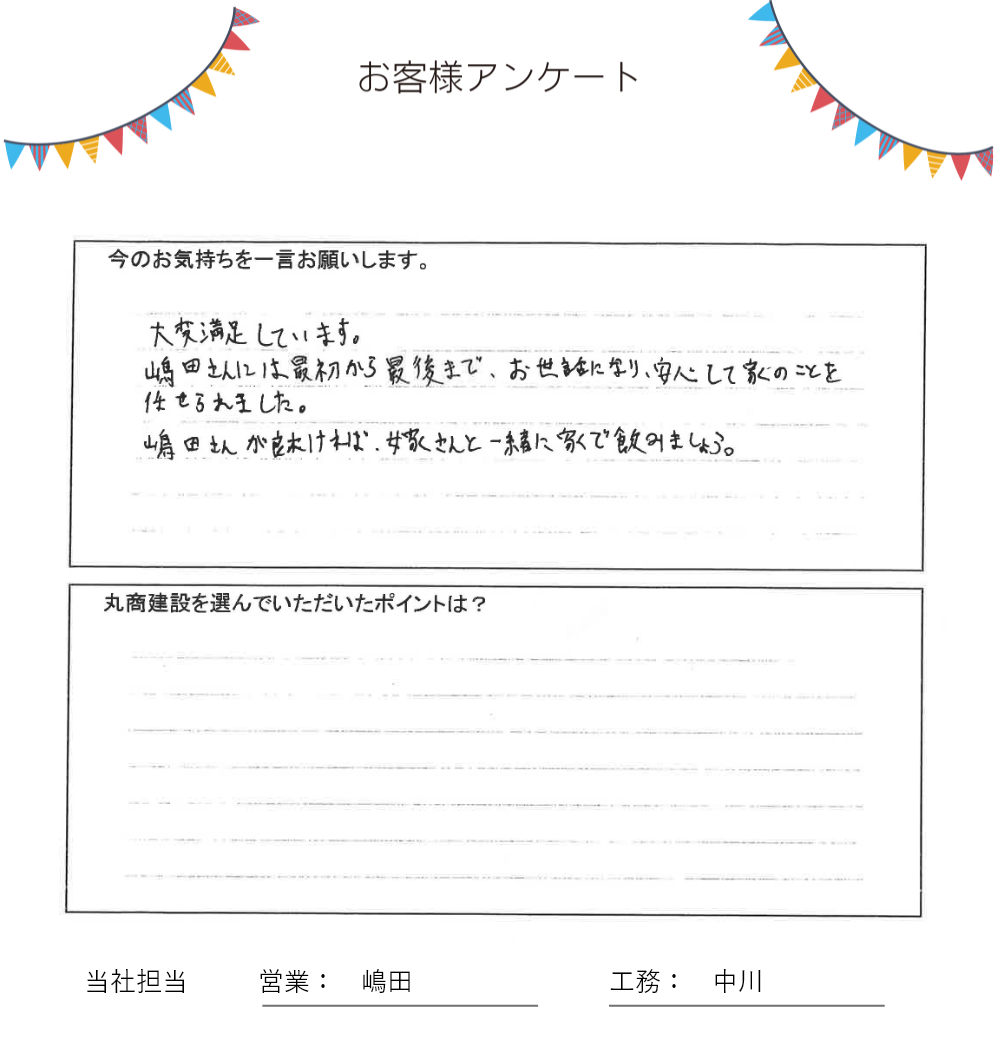 お客様アンケート
今のお気持ちを一言お願いします。
大変満足しています。
嶋田さんには最初から最後まで、お世話になり、安心して家のことを
任せられました。
嶋田さんが良ければ、嫁さんと一緒に家で飲みましょう。
丸商建設を選んでいただいたポイントは？
当社担当 営業： 嶋田 工務： 中川